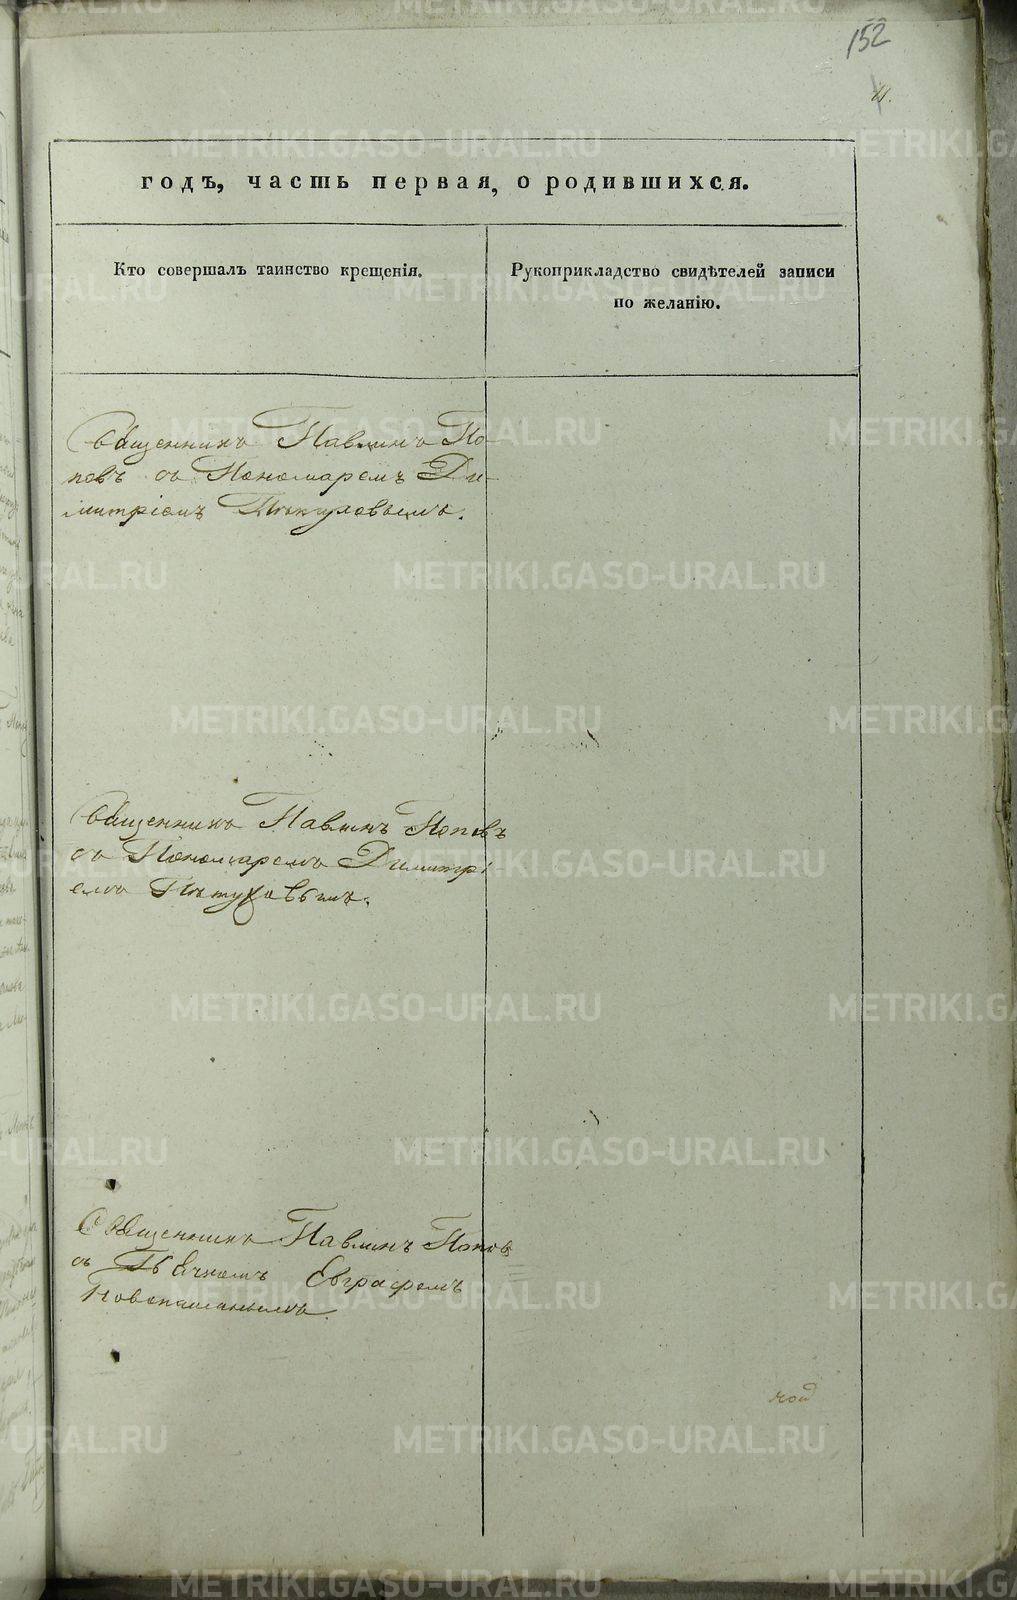 152
годъ, часть первая, о родившихся.
Кто совершалъ таинство крещенія.
Рукоприкладство свидѣтелей записи
по желанію.
Священникъ Павлинъ По-
повъ съ Пономаремъ Ди-
митріемъ Пѣтуховымъ.
Священникъ Павлинъ Поповъ
съ Пономаремъ Димитрі
емъ Пѣтуховымъ.
Священникъ Павлинъ Поповъ
съ Евграфомъ
METRIKI.GASO-URAL.RU